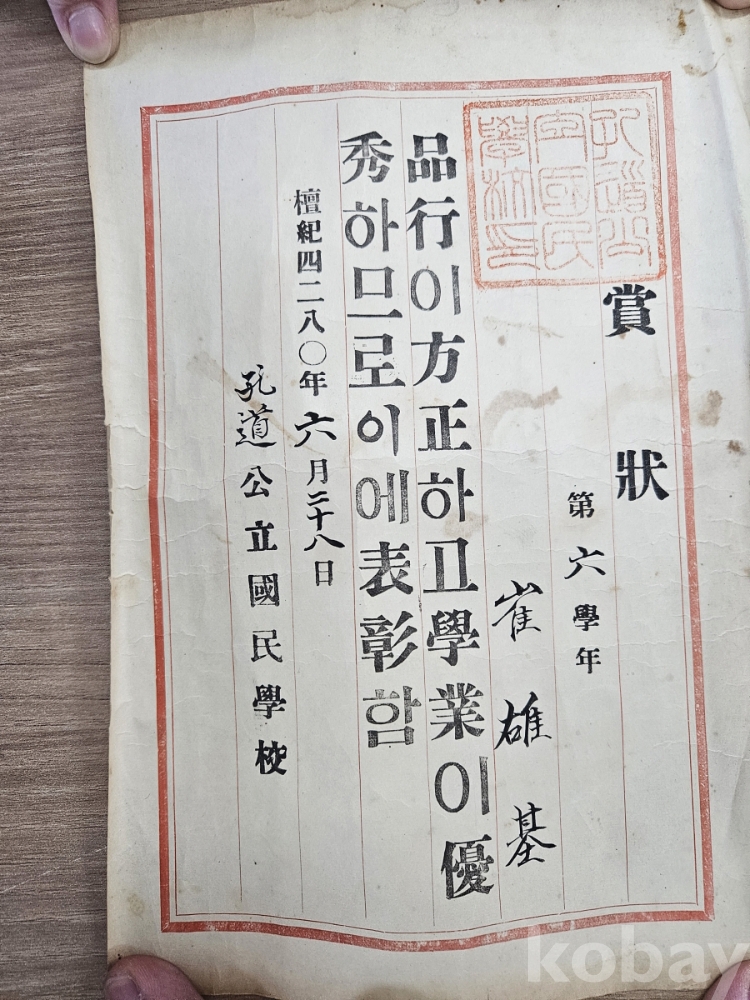 賞狀
第六學年
崔雄基
品行이方正하고學業이優
秀하므로이에表彰함
檀紀四二八〇年六月二十八日
孔道公立國民學校
孔道公
立國民
學校印
kobay